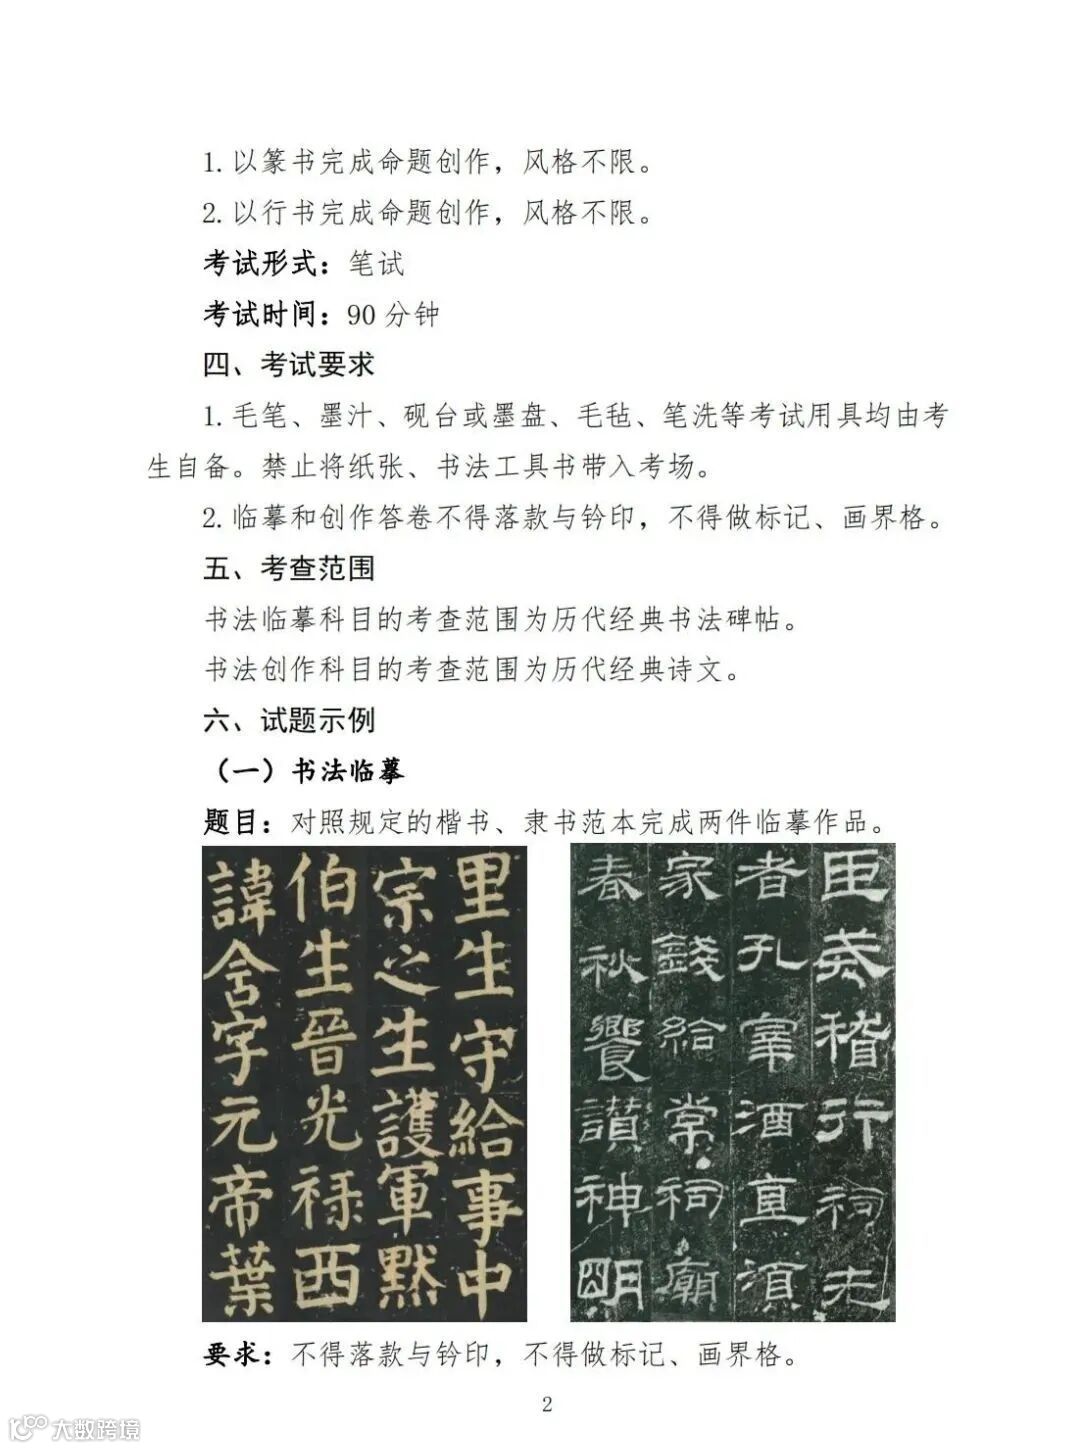 1.以篆书完成命题创作，风格不限。
2.以行书完成命题创作，风格不限。
考试形式：笔试
考试时间：90 分钟
四、考试要求
1.毛笔、墨汁、砚台或墨盘、毛毡、笔洗等考试用具均由考
生自备。禁止将纸张、书法工具书带入考场。
2.临摹和创作答卷不得落款与钤印，不得做标记、画界格。
五、考查范围
书法临摹科目的考查范围为历代经典书法碑帖。
书法创作科目的考查范围为历代经典诗文。
六、试题示例
（一）书法临摹
题目：对照规定的楷书、隶书范本完成两件临摹作品。
里生守給事中
宗之生護軍黙
伯生晉光禄西
諱含字元帝葉
臣蒙稽行祠先
者孔宰酒直須
家錢給常祠廟
春秋饗讃神明
要求：不得落款与钤印，不得做标记、画界格。
2
大数跨境